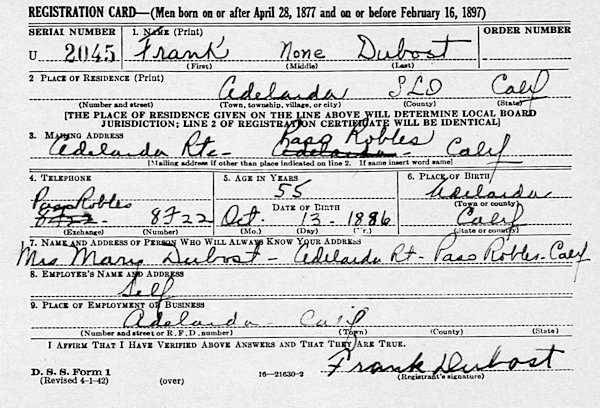 REGISTRATION CARD—(Men born on or after April 28, 1877 and on or before February 16, 1897)
SERIAL NUMBER 1. NAME (Print) ORDER NUMBER
U 2045 Frank None Dubost
(First) (Middle) (Last)
2 PLACE OF RESIDENCE (Print)
Adelaida SLO Calif
(Number and street) (Town, township, village, or city) (County) (State)
[THE PLACE OF RESIDENCE GIVEN ON THE LINE ABOVE WILL DETERMINE LOCAL BOARD
JURISDICTION; LINE 2 OF REGISTRATION CERTIFICATE WILL BE IDENTICAL]
3. MAILING ADDRESS
Paso Robles
Adelaida Rte- Adelaida - Calif
[Mailing address if other than place indicated on line 2. If same insert word same]
4. TELEPHONE 5. AGE IN YEARS 6. PLACE OF BIRTH
55 Adelaida
Paso Robles DATE OF BIRTH (Town or county)
8722 - 8F22 Oct. 13 - 1886 Calif
(Exchange) (Number) (Mo.) (Day) (Yr.) (State or country)
7. NAME AND ADDRESS OF PERSON WHO WILL ALWAYS KNOW YOUR ADDRESS
Mrs Mary Dubost - Adelaida Rt- Paso Robles- Calif
8. EMPLOYER'S NAME AND ADDRESS
Self
9. PLACE OF EMPLOYMENT OR BUSINESS
Adelaida - Calif
(Number and street or R. F. D. number) (Town) (County) (State)
I AFFIRM THAT I HAVE VERIFIED ABOVE ANSWERS AND THAT THEY ARE TRUE.
Frank Dubost
D. S. S. Form 1
(Revised 4-1-42) (over) 16—21630-2 (Registrant's signature)